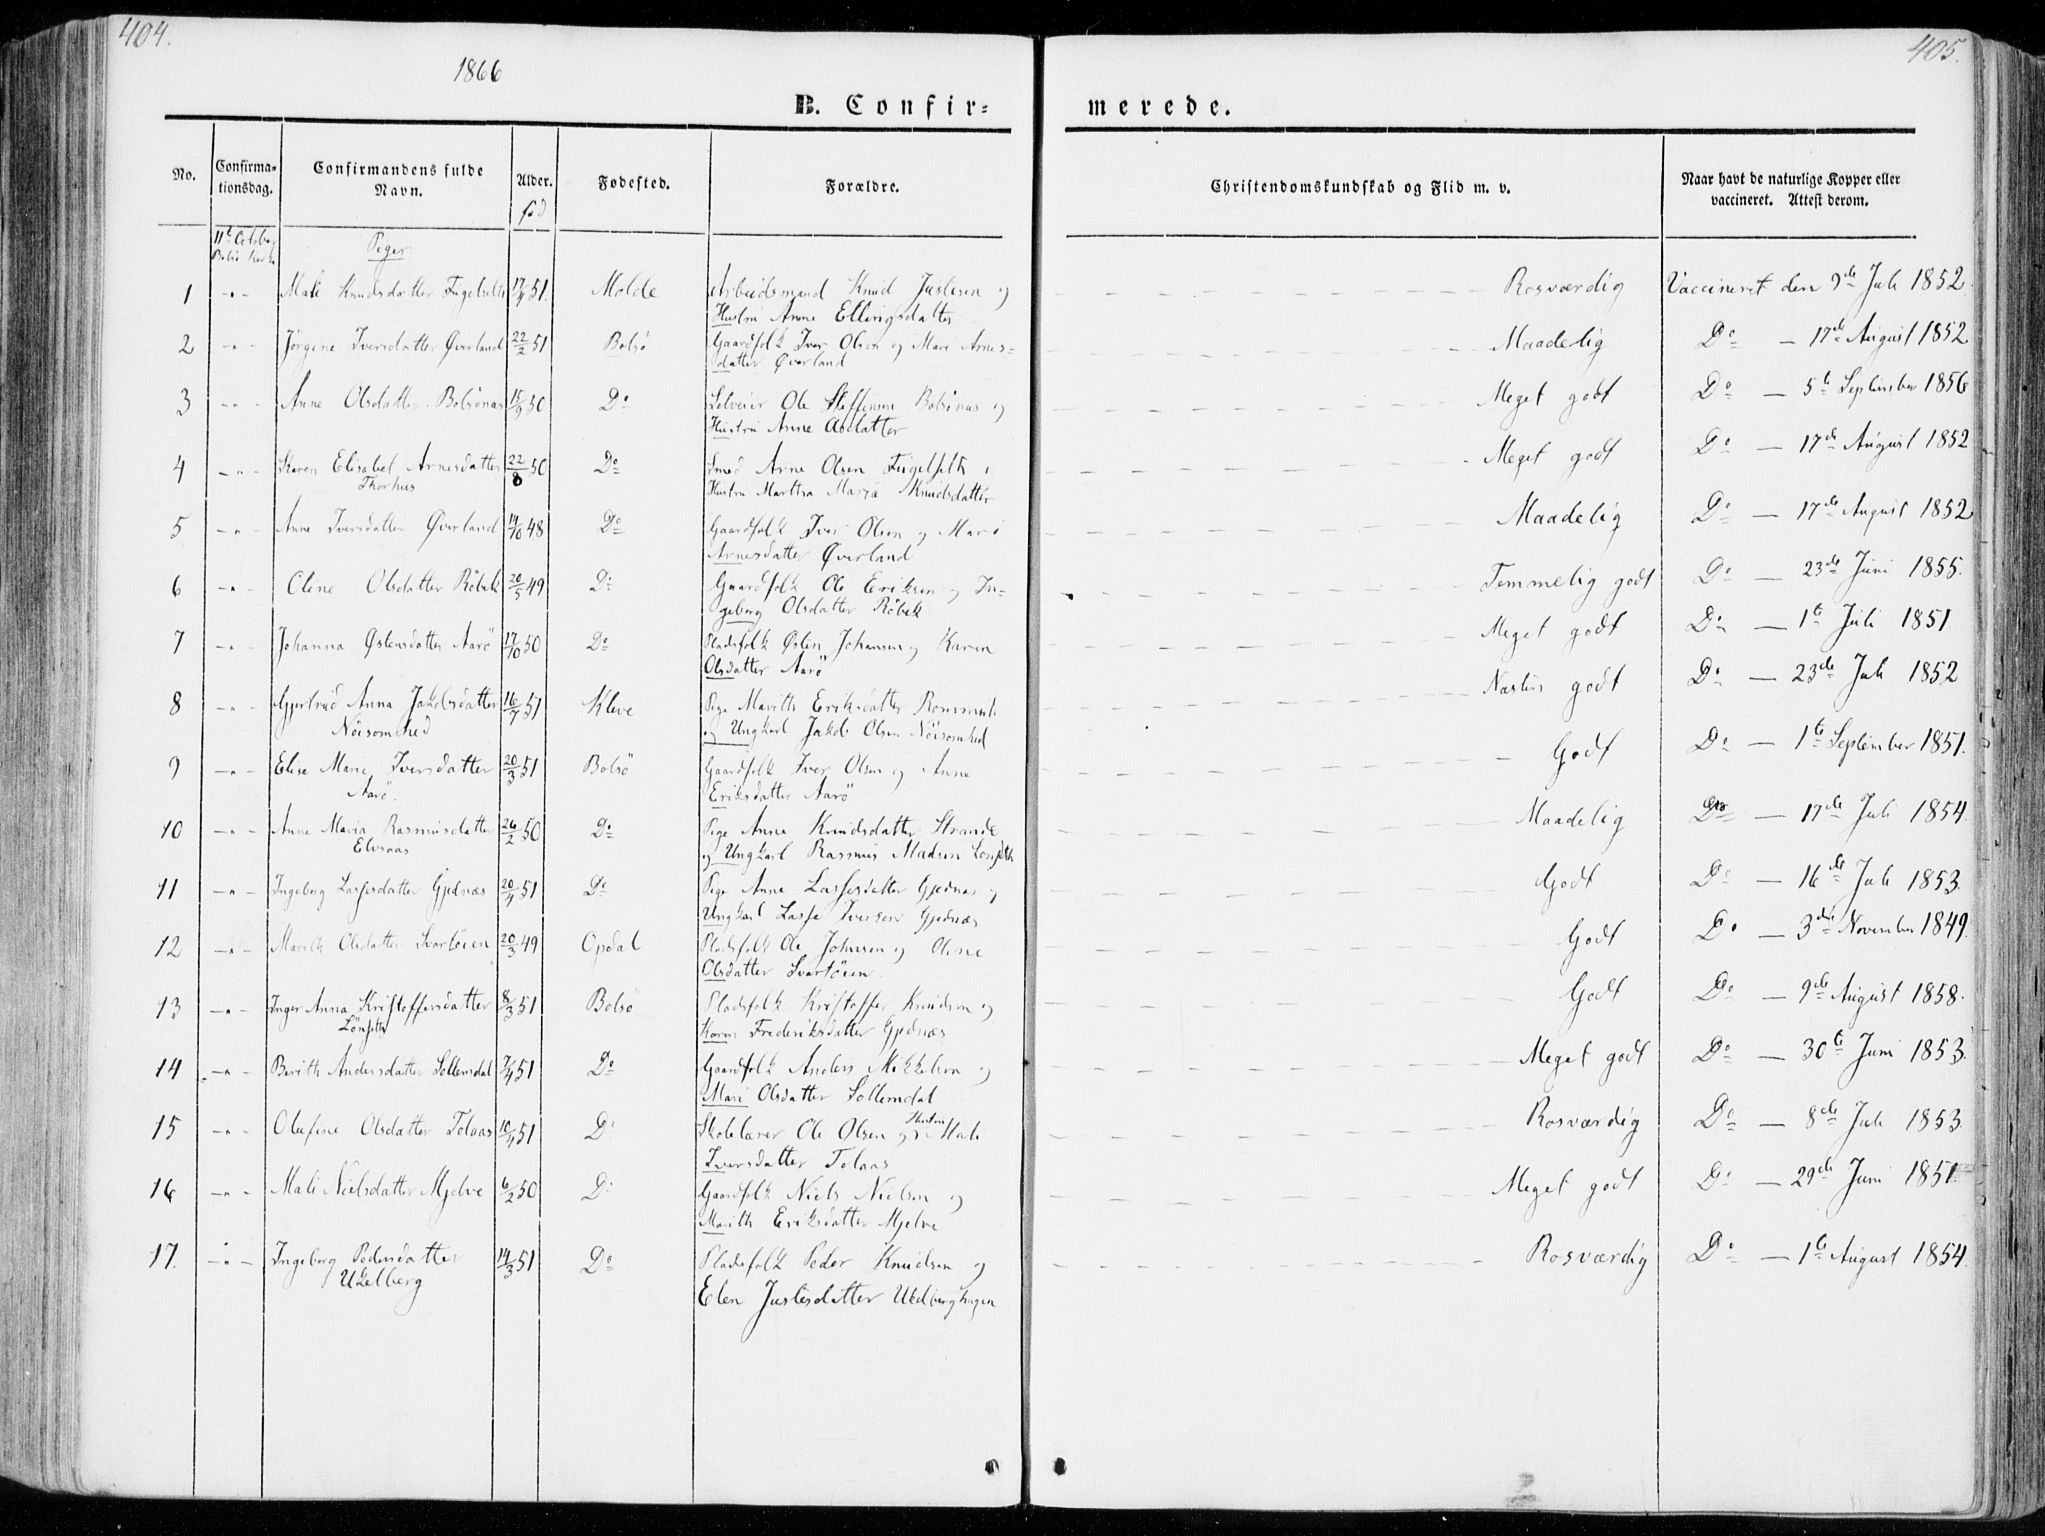 404.
405.
1866
B. Confir=
merede.
No.
Confirma=
tionsdag.
Confirmandens fulde
Navn.
Alder.
fød
Fødested.
Forældre.
Christendomskundskab og Flid m. v.
Naar havt de naturlige Kopper eller
vaccineret. Attest derom.
11te Octobr
Bolsø Kirke
Piger
1 -"- Mali Knudsdatter Fugelseth 17/4 51. Molde Arbeidsmand Knud Justesen og Rosværdig Vaccineret den 9de Juli 1852
Hustru Anne Ellingsdatter
2 -"- Jørgine Iversdatter Øverland 22/2 51 Bolsø Gaardfolk Iver Olsen og Mari Arnes= Maadelig Do — 17de August 1852
datter Øverland
3 -"- Anne Olsdatter Bolsönæs 15/9 50 Do Selveier Ole Steffensen Bolsönæs og Meget godt Do — 5te September 1856
Hustru Anne Olsdatter
4 -"- Karen Elisabet Arnesdatter 22/8 50 Do Smed Arne Olsen Fugelseth Meget godt Do — 17de August 1852
Thorhus Hustru Martha Maria Knudsdatter
5 -"- Anne Iversdatter Øverland 48 Do Gaardfolk Iver Olsen og Mari Maadelig Do — 17de August 1852
Arnesdatter Øverland
6 -"- Olene Olsdatter Röbek 20/5 49 Do Gaardfolk Ole Eriksen og In= Temmelig godt Do — 23de Juni 1855.
geborg Olsdatter Röbek
7 -"- Johanna Østensdatter Aarö 17/10 50 Do Pladsfolk Østen Johansen og Karen Meget godt Do — 1te Juli 1851
Olsdatter Aarö
8 -"- Gjertrud Anna Jakobsdatter 16/7 51 Kleve Pige Marith Eriksdatter Næsten godt Do — 23de Juli 1852
Nöisomhed og Ungkarl Jakob Olsen Nöisomhed
9 -"- Elise Marie Iversdatter 20/3 51 Bolsö Gaardfolk Iver Olsen og Anne Godt Do — 1te September 1851.
Aarö. Eriksdatter Aarö
10 -"- Anne Maria Rasmusdatter 26/2 50 Do Pige Anne Knudsdatter Strande Maadelig Do — 17de Juli 1854.
Elvsaas og Ungkarl Rasmus Madsen
11 -"- Ingeborg Lassesdatter Gjednæs 20/4 51 Do Pige Anne Lassesdatter Gjednæs og Godt Do — 16de Juli 1853.
Ungkarl Lasse Iversen Gjednæs
12 -"- Marith Olsdatter Svartöien 20/3 49 Opdal Pladsfolk Ole Johnsen og Olene Godt Do — 3die November 1849.
Olsdatter Svartöien
13 -"- Inger Anna Kristoffersdatter 8/3 51 Bolsö Pladsfolk Kristoffer Knudsen og Godt Do — 9de August 1858.
Lönseth Karen Frederiksdatter Gjednæs
14 -"- Berith Andersdatter Sollemdal 7/4 51 Do Gaardfolk Anders Mikkelsen og Meget godt Do — 30te Juni 1853.
Mari Olsdatter Sollemdal
15 -"- Olufine Olsdatter Tolaas 10/4 51 Do Skolelærer Ole Olsen og Hustru Mali Rosværdig Do — 8de Juli 1853.
Iversdatter Tolaas
16 -"- Mali Nielsdatter Mjelve 6/2 50 Do Gaardfolk Niels Nielsen og Meget godt Do — 29de Juni 1851.
Marith Eriksdatter Mjelve
17. -"- Ingeborg Pedersdatter 14/3 51 Do Pladsfolk Peder Knudsen og Rosværdig Do — 1te August 1854.
Elen Justesdatter